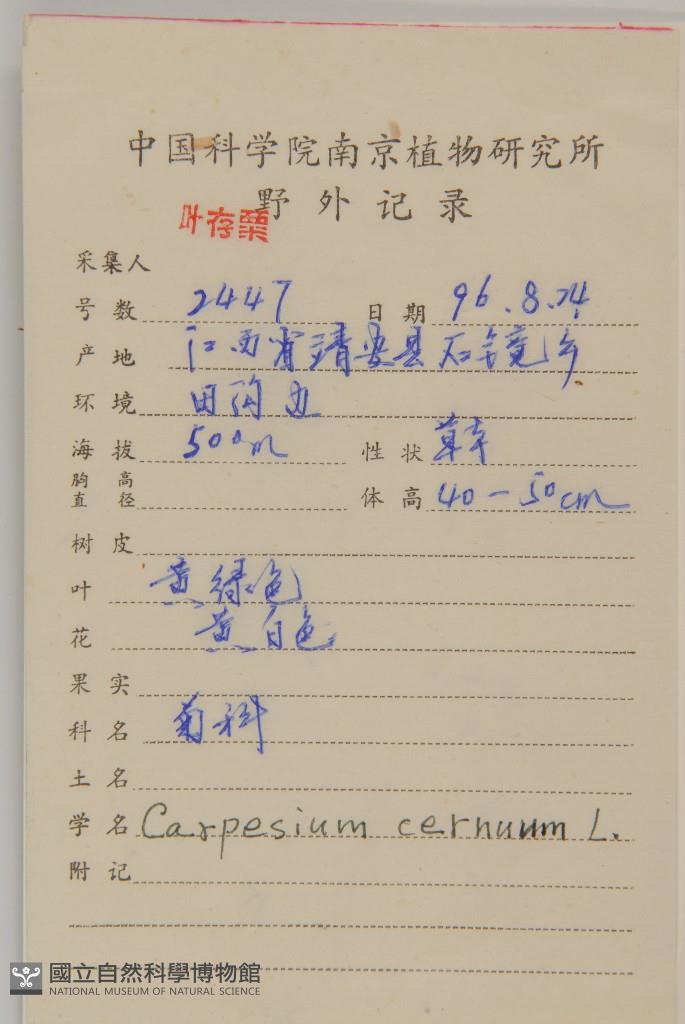 中国科学院南京植物研究所
野外记录
叶存栗
采集人
号数 2447 日期 96.8.24
产地 江西省靖安县石镜乡
环境 田沟边
海拔 500m 性状 草本
胸高直径 体高 40-50cm
树皮
叶 黄绿色
花 黄白色
果实
科名 菊科
土名
学名 Carpesium cernuum L.
附记
國立自然科學博物館
NATIONAL MUSEUM OF NATURAL SCIENCE